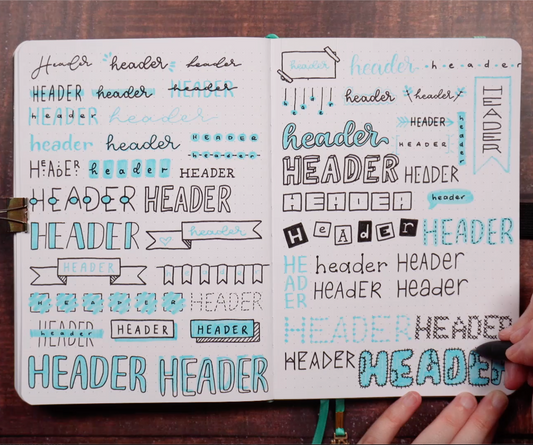 Header header header
HEADER header header HEADER
HEADER header header
header header HEADER
header
HEADER header HEADER
HEADER HEADER
HEADER header
HEADER
HEADER HEADER
HEADER HEADER HEADER
HEADER HEADER
header header header
header header HEADER
header HEADER header
HEADER
HEADER HEADER
HEADER header
HeAder HEADER
HEADER header HEADER
HEADER Header
HEADER HEADER
HEADER HEADER